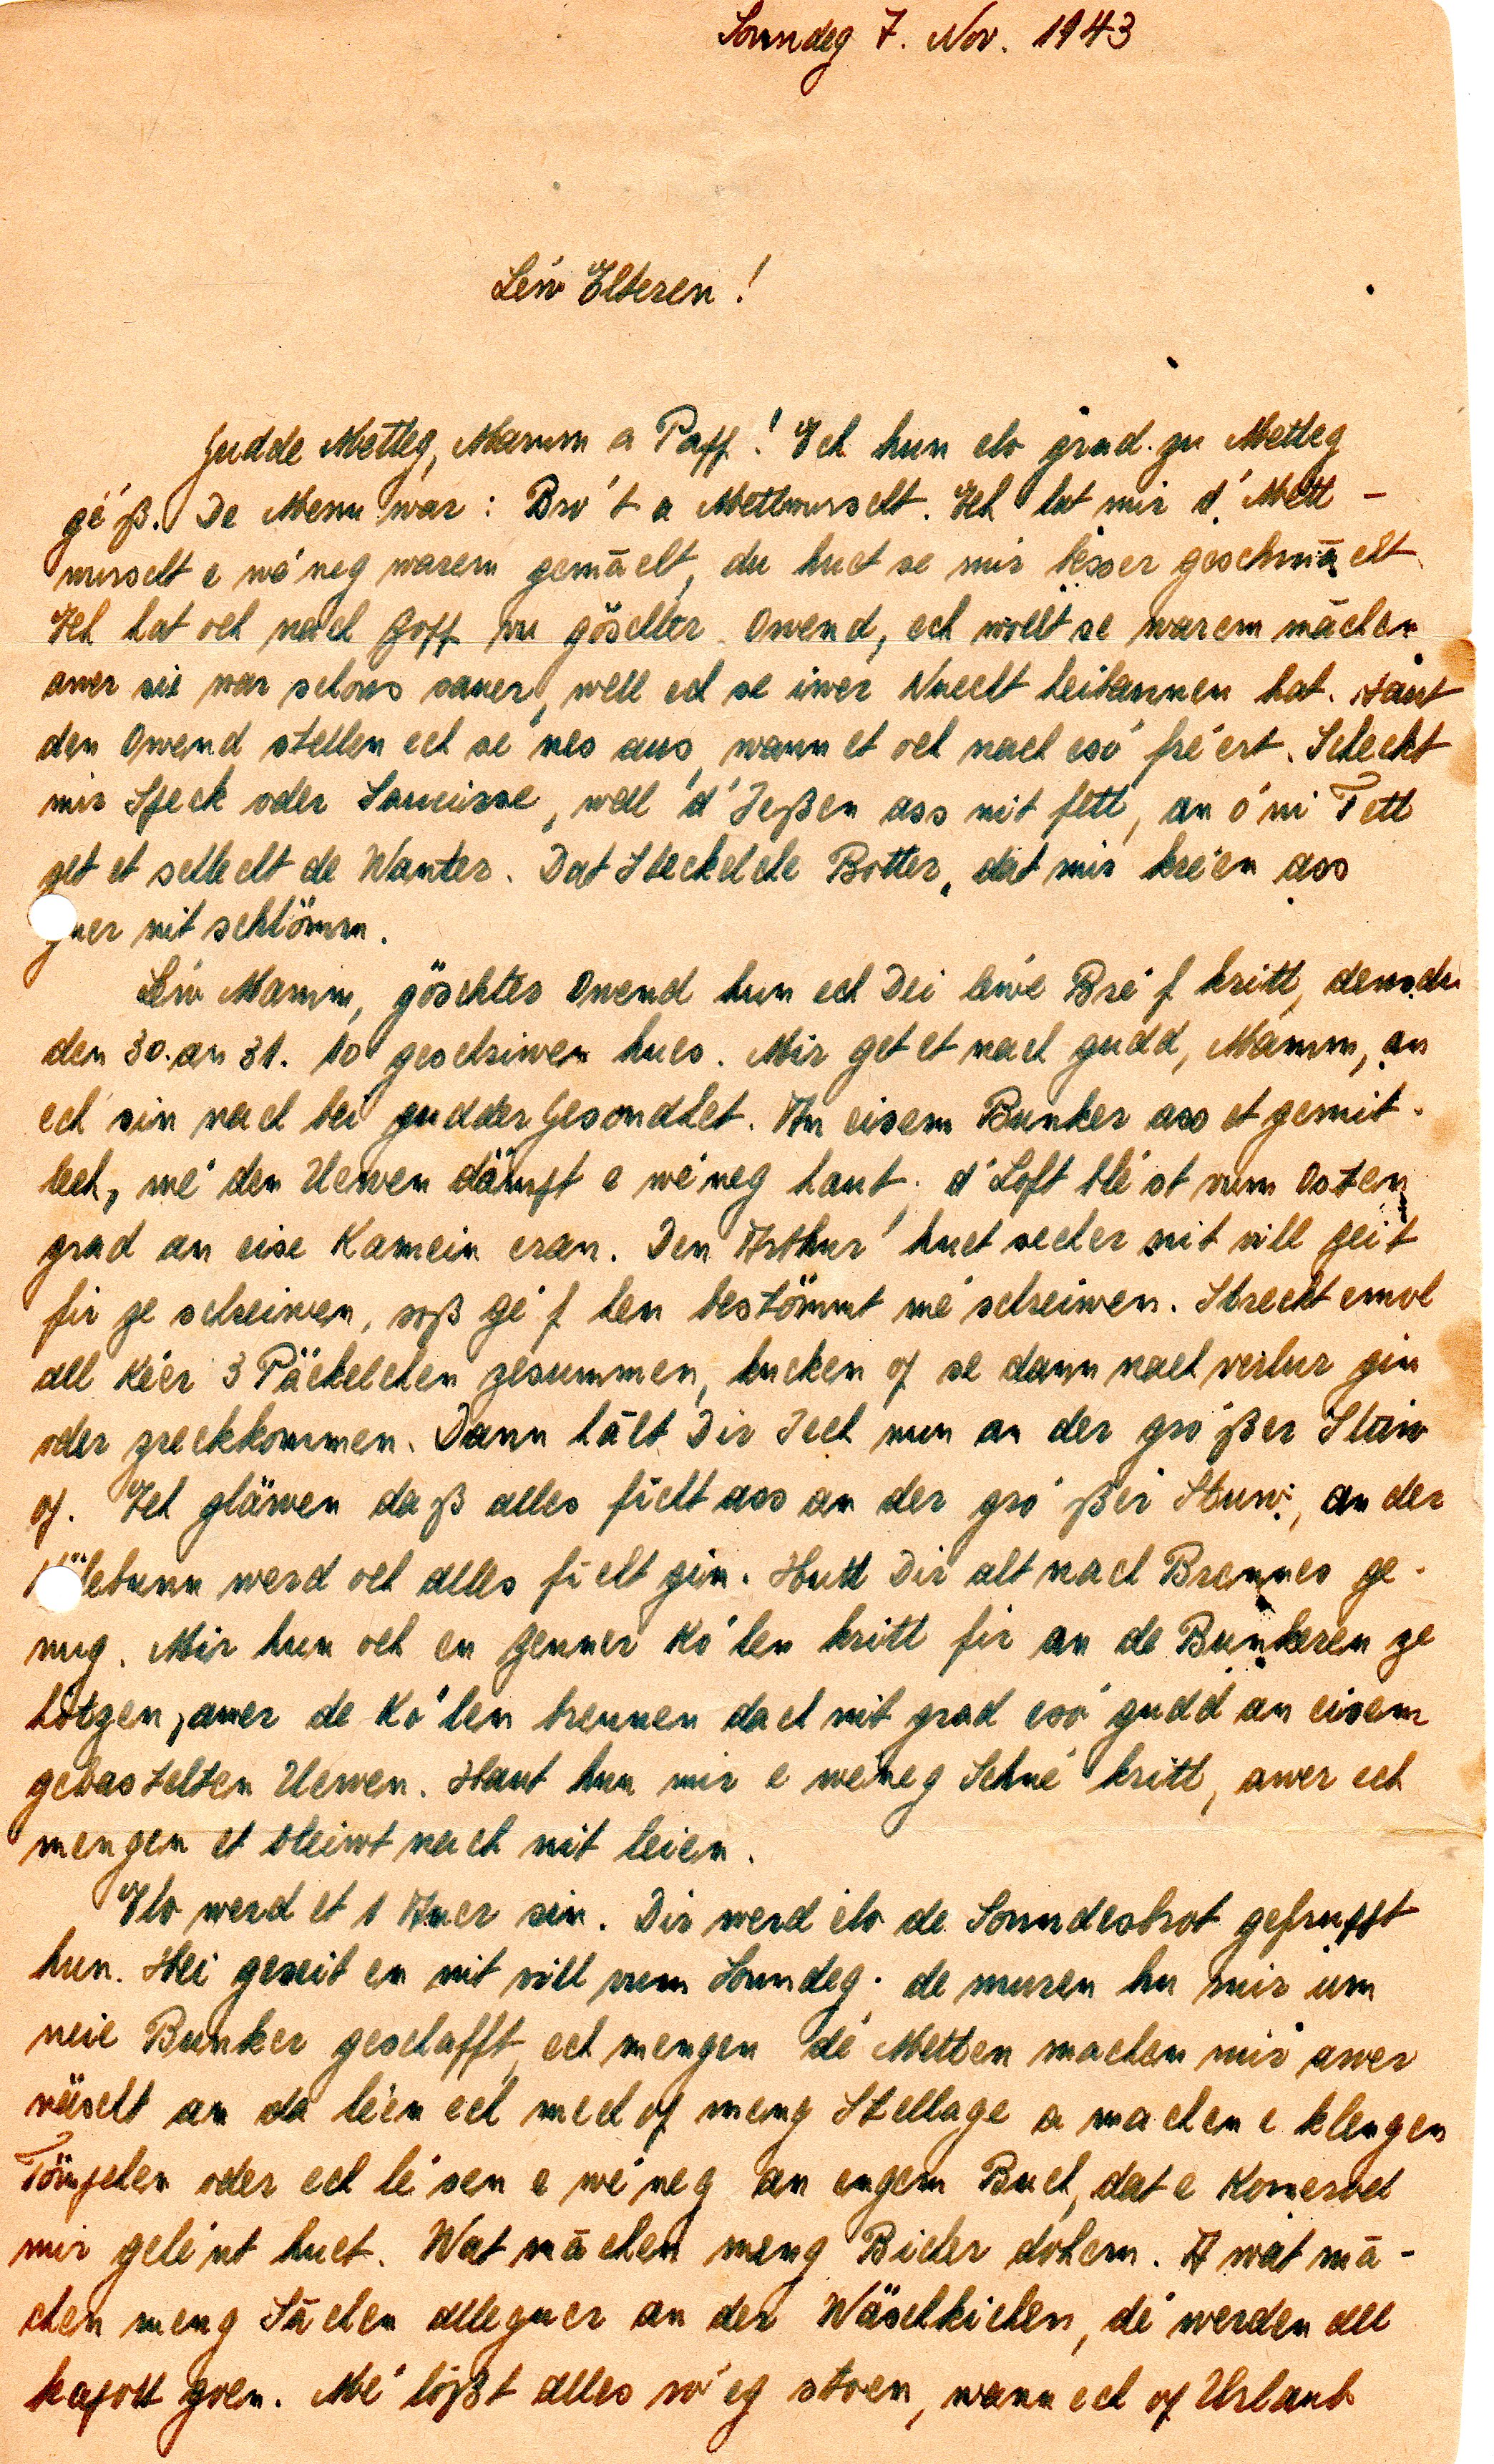 Sonndeg 7. Nov. 1943
Léiw Elteren!
Gudde Metteg, Mamm a Papp! Ech hun elo grad zu Metteg
gé'ß. De Menu war: Bro't a Mettwurscht. Ech hat mir d'Mett-
wurscht e wé'neg warem gemācht, du huet se mir besser geschmācht.
Ech hat och nach Zopp vu göschter Owend, ech wollt se warem māchen
awer sie war schons sauer, well ech se iwer Nuecht heibannen hat. Haut
den Owend stellen ech se nes aus, wann et och nach eso' fré'ert. Scheckt
mir Speck oder Saucisse, well d'Ießen ass nit fett, an o'ni Fett
get et schlecht de Wanter. Dat Steckelche Botter, dat mir kréien ass
guer nit schlömm.
Léiw Mamm, göschter Owend hun ech Dei léiwe Bré'f kritt, dens du
den 30. an 31. 10 geschriwen hues. Mir get et nach gudd, Mamm, an
ech sin nach bei gudder Gesondhet. An eisem Bunker ass et gemit-
lech, mé' den Uewen dämpft e wé'neg haut. d'Loft blé'st vum Osten
grad an eise Kamein eran. Den Arthur huet secher nit vill Zeit
fir ze schreiwen, soß gé'f hen bestömmt mé' schreiwen. Schreckt emol
all Kéier 3 Päckelchen zesummen, kucken of se dann nach verluer gin
oder zreckkommen. Dann hālt Dir Iech nun an der gro'ßer Stuw
of. Ech gläwen daß alles fiicht ass an der gro'ßer Stuw, an der
werd och alles fiicht gin. Hutt Dir alt nach Brennes ge-
nug. Mir hun och en Zenner Ko'len kritt fir an de Bunkeren ze
hötzen, awer de Ko'len brennen dach nit grad eso' gudd an eisem
gebastelten Uewen. Haut hun mir e wéineg Schné' kritt, awer ech
mengen et bleiwt nach nit leien.
Elo werd et 1 Auer sin. Dir werd elo de Sonndesbrot gefruppt
hun. Hei geseit en nit vill vum Sonndeg. de muren hu mir um
neie Bunker geschafft, ech mengen dé Metten machen mir awer
näischt an da léien ech mech of meng Stellage a machen e klengen
Tömpchen oder ech lé'sen e wé'neg an engem Buch, dat e Komerod
mir gelé'nt huet. Wat māchen meng Bicher dohem. A wat mā-
chen meng Sāchen alleguer an der Wäschkichen, dé' werden all
kapott goen. Mé' loßt alles ro'eg stoen, wann ech of Urlaub